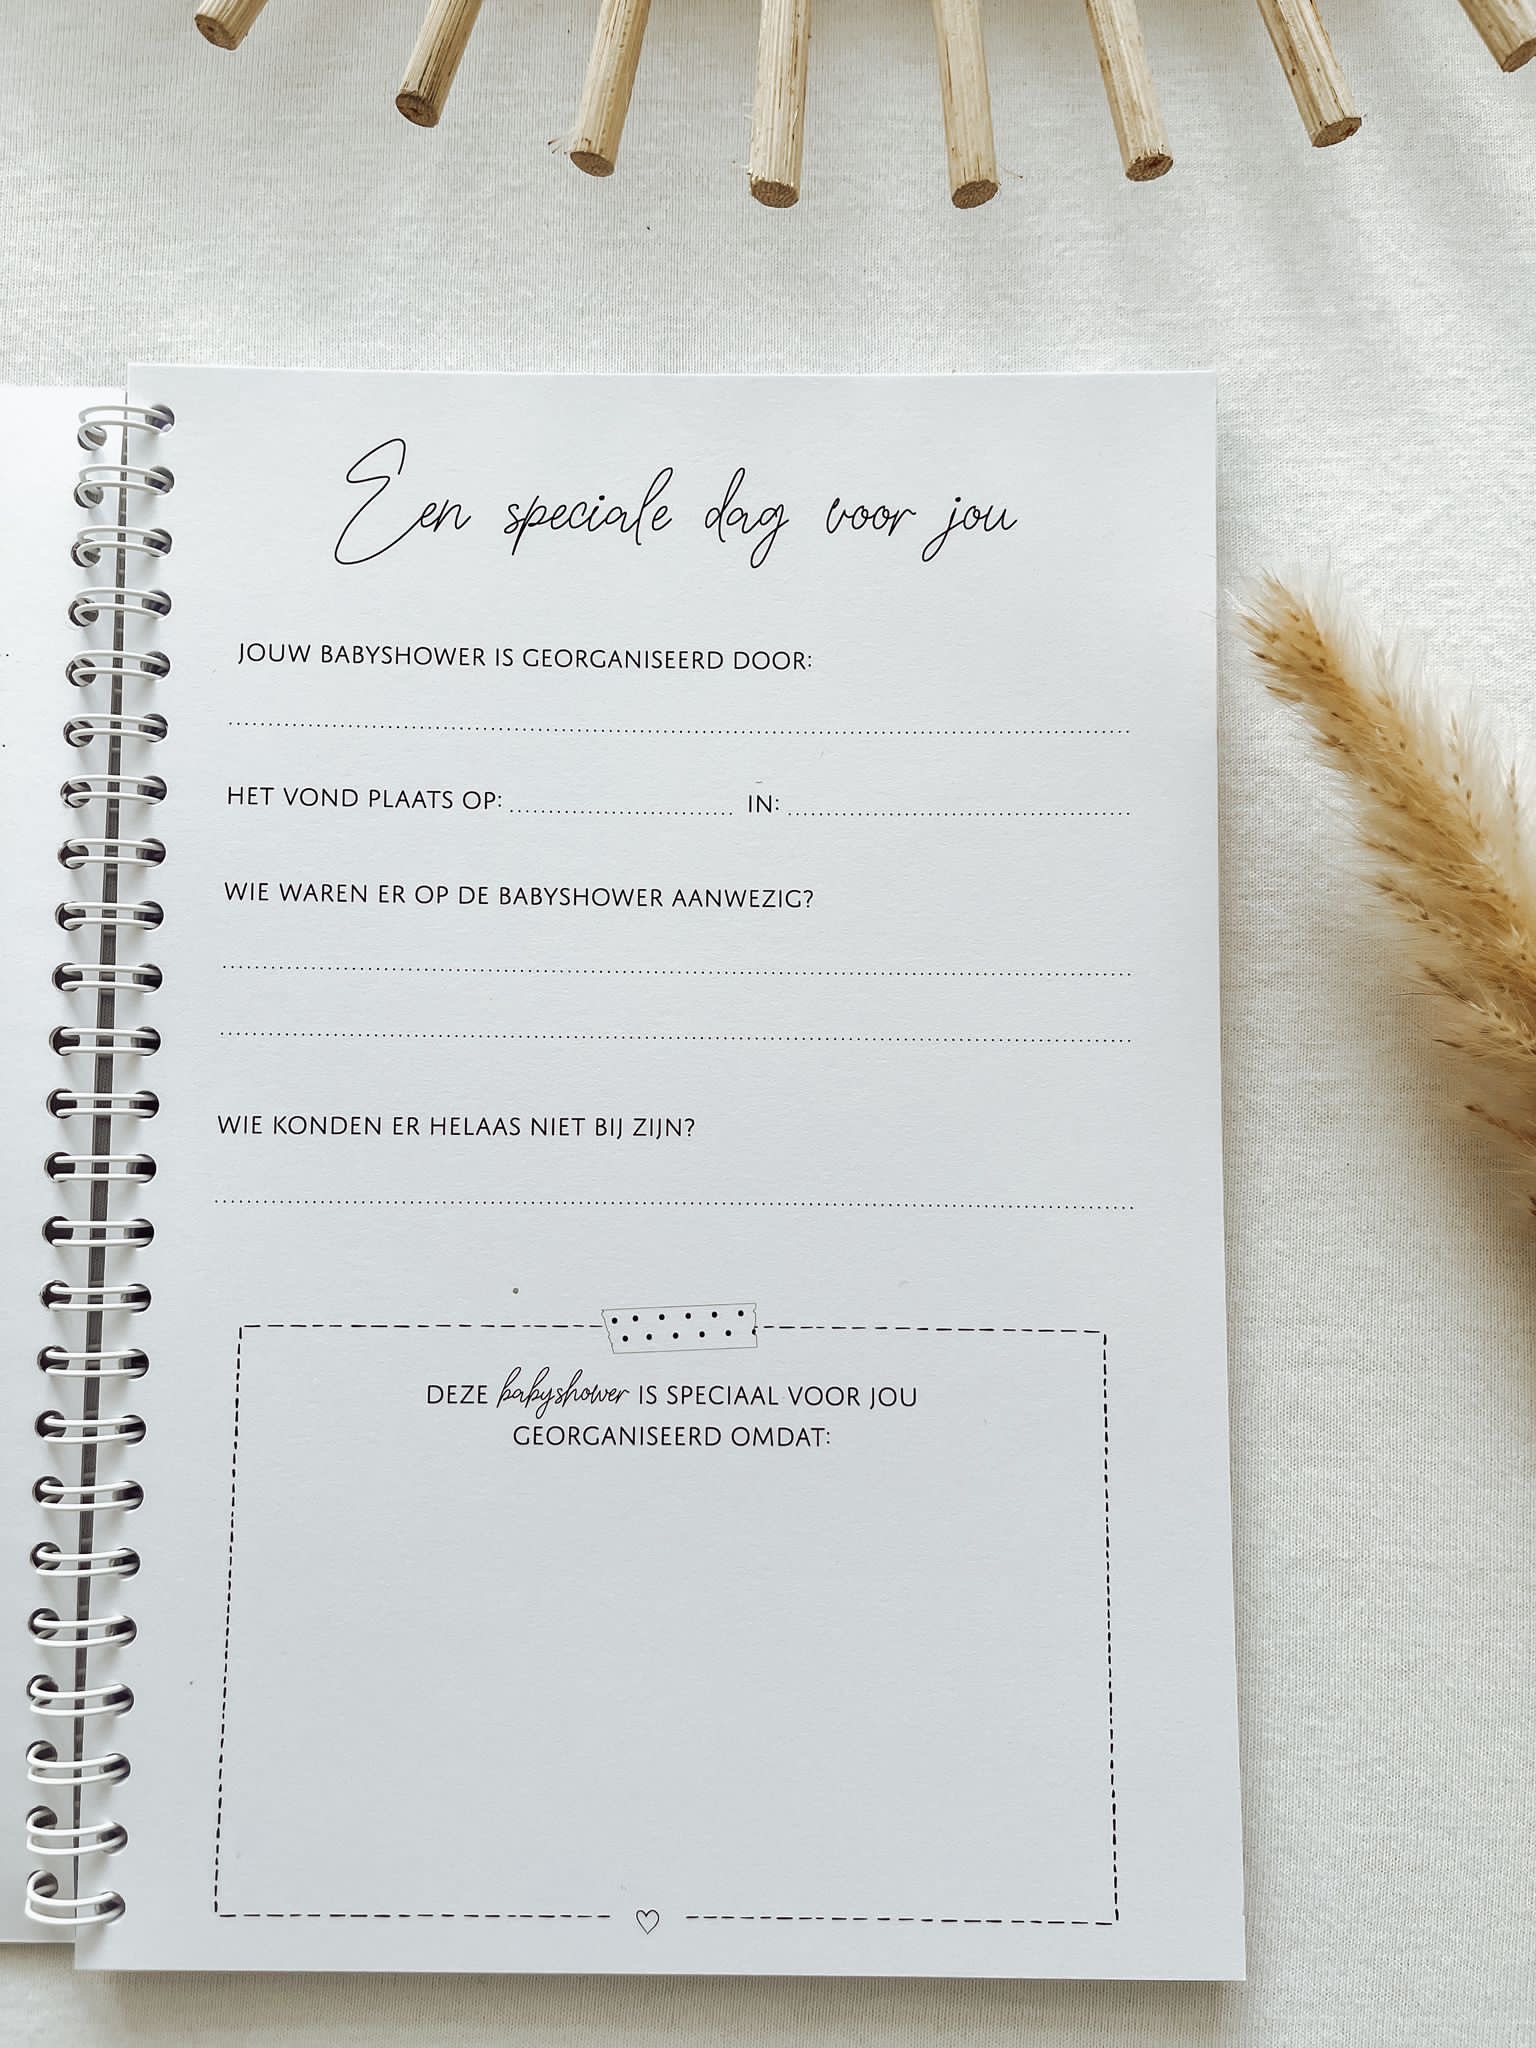 Een speciale dag voor jou
JOUW BABYSHOWER IS GEORGANISEERD DOOR:
HET VOND PLAATS OP: IN:
WIE WAREN ER OP DE BABYSHOWER AANWEZIG?
WIE KONDEN ER HELAAS NIET BIJ ZIJN?
DEZE babyshower IS SPECIAAL VOOR JOU
GEORGANISEERD OMDAT: